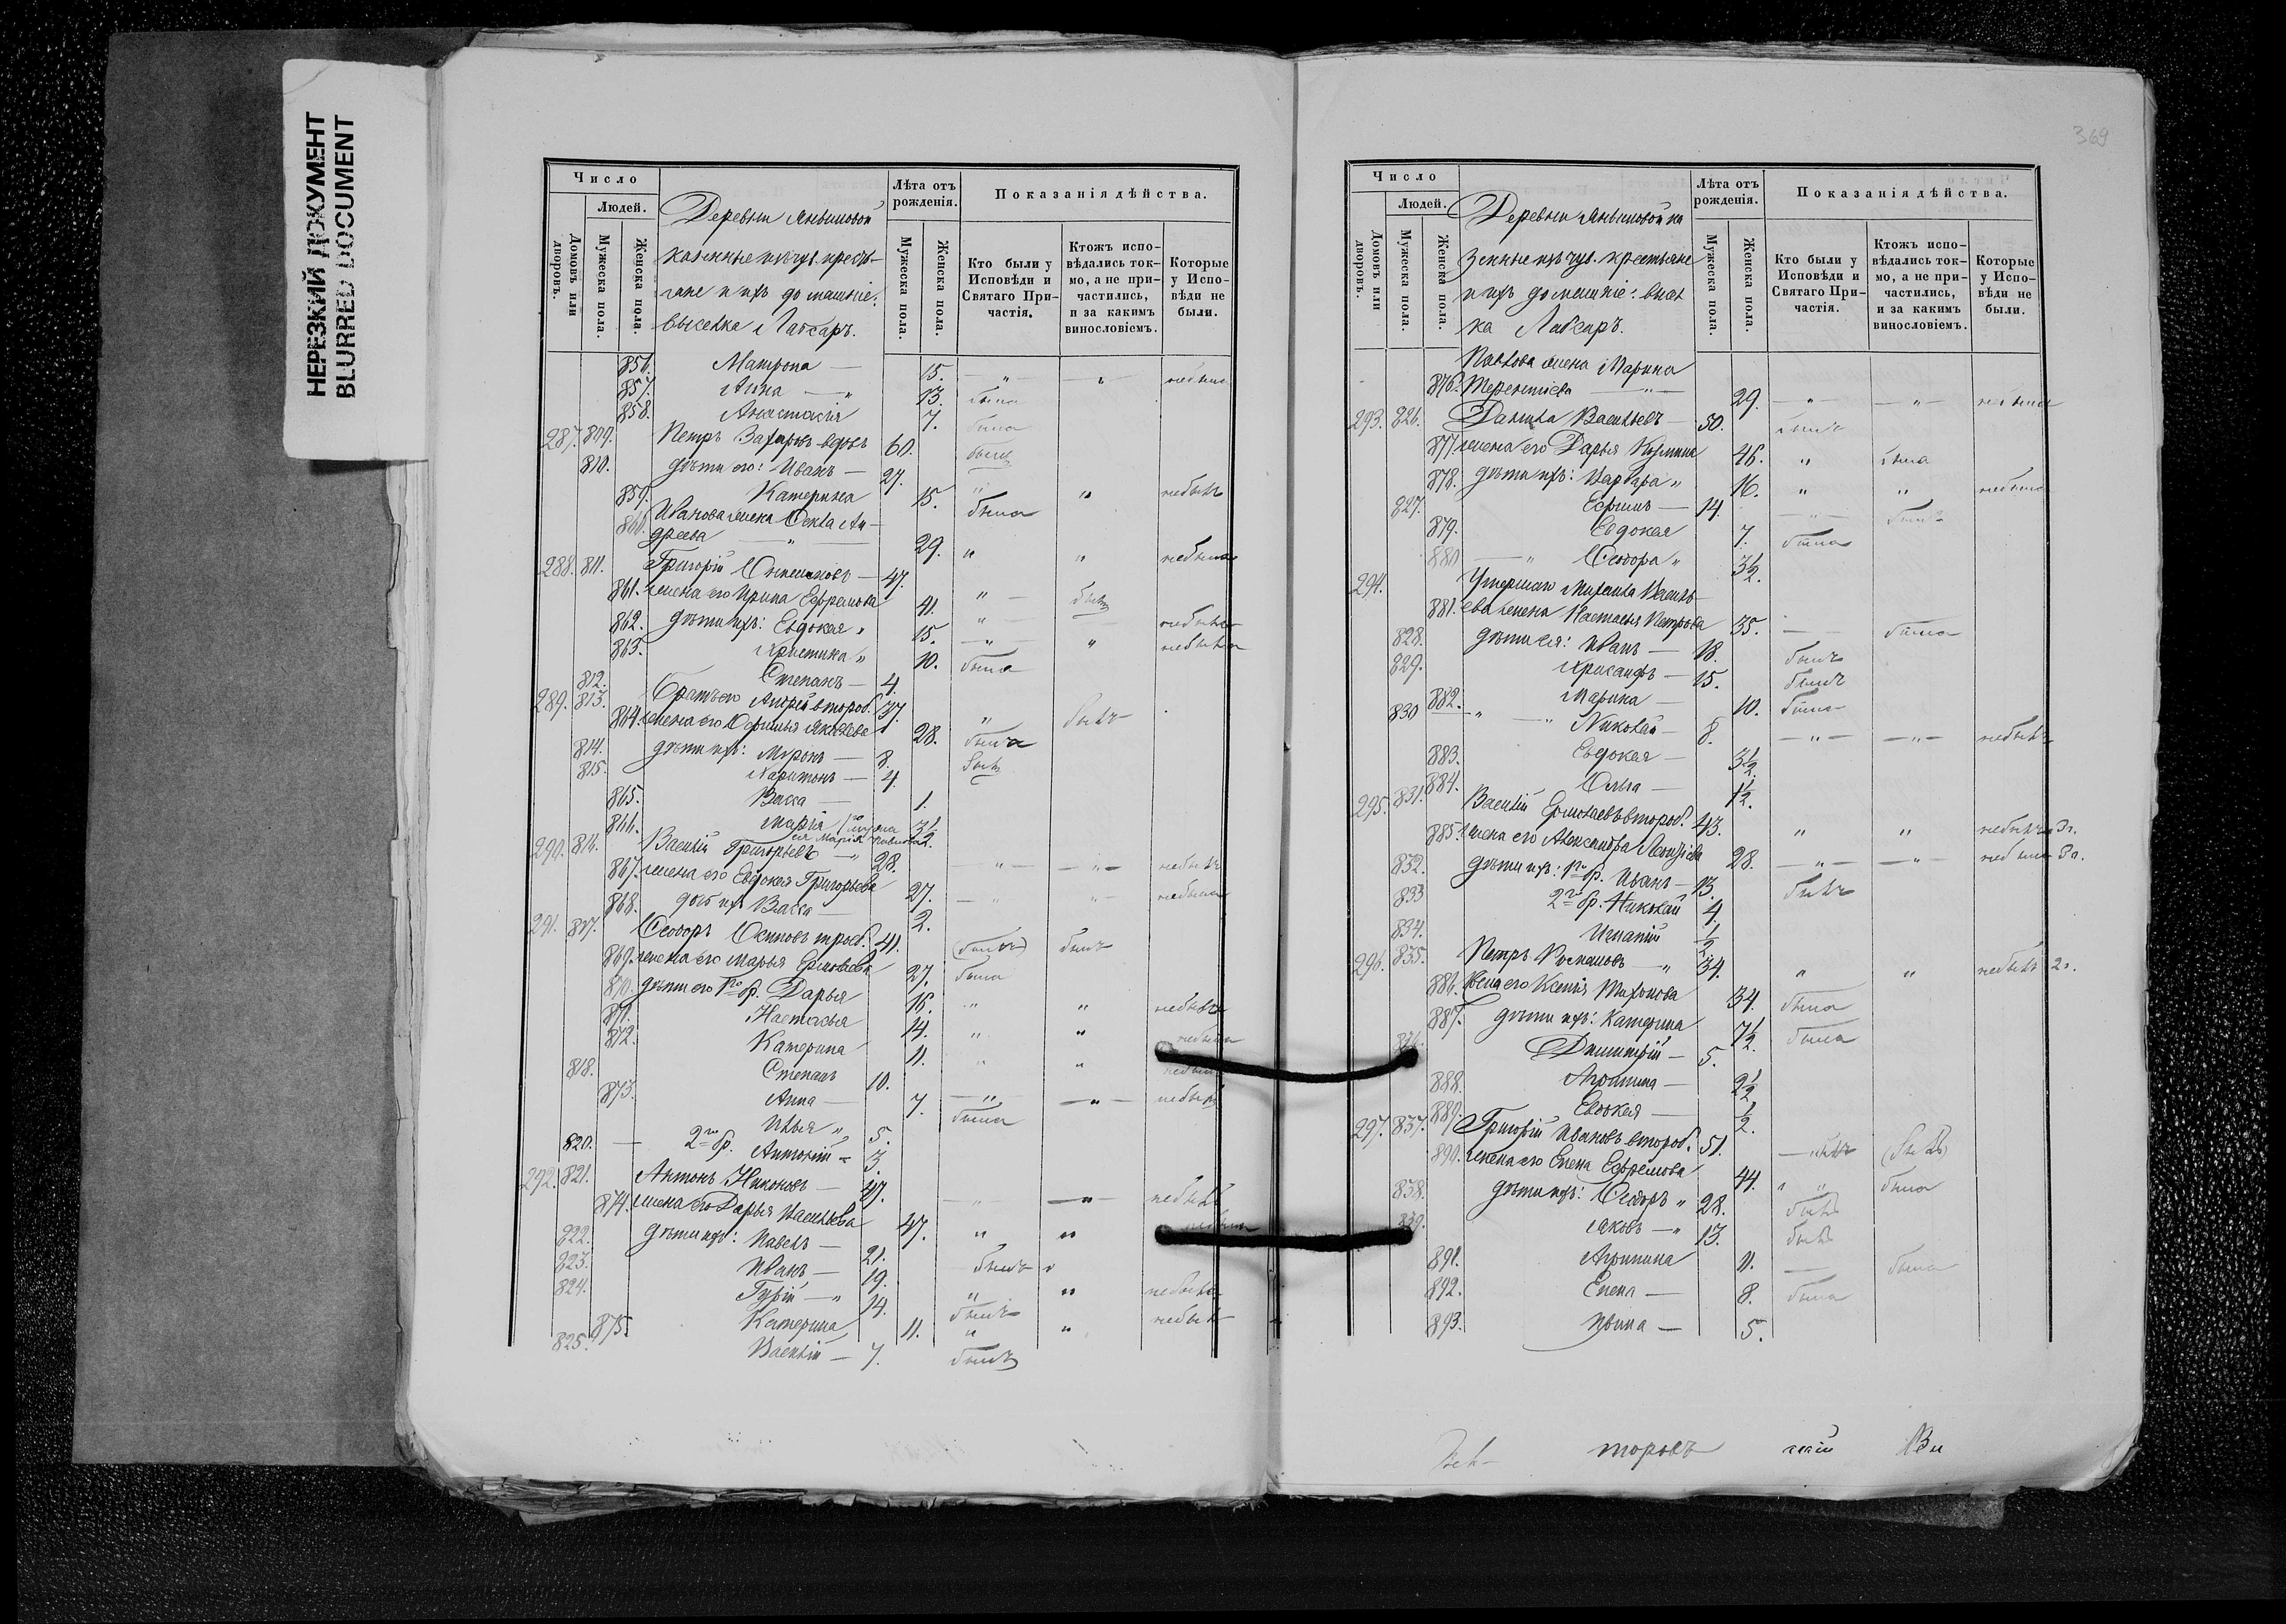 НЕРЕЗКИЙ ДОКУМЕНТ
BLURRED DOCUMENT
Число
Людей.
Домовъ или дворовъ.
Мужеска пола.
Женска пола.
Деревни
казенные изъ чув. кресть-
яне и ихъ домашніе:
выселка Лапсаръ.
Лѣта отъ рожденія.
Мужеска пола.
Женска пола.
Показанія дѣйства.
Кто были у Исповѣди и Святаго При-частія.
Ктожъ испо-вѣдались ток-мо, а не при-частились, и за какимъ винословіемъ.
Которые у Испо-вѣди не были.
856. Матрона — 15. — „ — „ небыла
857. Анна — „ 13. была
858. Анастасія 7. была
287. 809. Петръ Захаровъ вдовъ 60. былъ
810. дѣти его: Иванъ — 27. „ „ небылъ
859. Катерина 15. была
860. Иванова жена Ан-
дреева — „ — 29. „ „ небыла
288. 811. Григорій — 47. „ — былъ
861. жена его Ирина Ефремова 41. „ — небыла
862. дѣти ихъ: Евдокея „ 15. — „ „ небыла
863. Христина „ 10. была
812. Степанъ — 4.
289. 813. Братъ его Андрей второб. 37. „ былъ
864. жена его 28. была
814. дѣти ихъ: Миронъ — 8. былъ
815. Харитонъ — 4.
865. Васса — 1.
866. Марія 3½
290. 816. Василій Григорьевъ — „ 28. — „ — „ — небылъ
867. жена его Евдокея Григорьева 27. — „ „ — небыла
868. дочь ихъ Васса — 2.
291. 817. Ѳеодоръ Осиповъ 41. (былъ) былъ
869. жена его Марья Ермолаева 27. была
870. дѣти его 1го бр. Дарья 16. „ „ небыла
871. Настасья 14. „ „ небыла
872. Катерина 11. „ „
818. Степанъ 10. — „ — „ — небылъ
873. Анна — 7. была
Илья „ 5.
820. — 2го бр. Антоній „ 3.
292. 821. Антонъ Никоновъ — 47. — „ — „ — небылъ
874. жена его Дарья Васильева 47. „ „ небыла
822. дѣти ихъ: Павелъ — 21. былъ
823. Иванъ — 19. „ „ небылъ
824. Гурій — „ 14. былъ
875. Катерина 11. „ „
825. Василій — 7. былъ
369
Число
Людей.
Домовъ или дворовъ.
Мужеска пола.
Женска пола.
Деревни ка
зенные изъ чув. крестьяне
и ихъ домашніе: высел
ка Лапсаръ.
Лѣта отъ рожденія.
Мужеска пола.
Женска пола.
Показанія дѣйства.
Кто были у Исповѣди и Святаго При-частія.
Ктожъ испо-вѣдались ток-мо, а не при-частились, и за какимъ винословіемъ.
Которые у Испо-вѣди не были.
Павлова жена Марина
876. Терентіева — „ — 29. — „ — — „ — небыла
293. 826. Данила Васильевъ — 50. былъ
877. жена его Дарья Кузмина 46. „ была
878. дѣти ихъ: Варвара „ 16. „ „ небыла
827. Ефимъ — 14. — „ — былъ
879. Евдокея 7. была
880 — „ Ѳеодора „ 3½
294. Умершаго Михаила Василь-
881. ева жена Настасья Петрова 35. — была
828. дѣти ея: Иванъ — 18. былъ
829. Хрисанфъ — 15. былъ
882. Марина 10. была
830 „ — „ Николай — 8. — „ — — „ — небылъ
883. Евдокея — 3½
884. — 1½
295. 831. Василій Ермолаевъ второб. 43. „ „ небылъ 3г.
885. жена его Александра 28. — „ — — „ — небыла 3г.
832. дѣти ихъ: 1го бр. Иванъ — 13. былъ
833 2го бр. Николай 4
834. Игнатій ½
296. 835. Петръ — „ 34. „ „ небылъ 2г.
886. жена его Ксенія Тихонова 34. была
887. дѣти ихъ: Катерина 7½ была
836. Димитрій — 5.
888. Агрипина — 2½
889. Евдокея — ½
297. 837. Григорій Ивановъ второб. 51. (былъ)
890. жена его Елена Ефремова 44. „ „ была
838. дѣти ихъ: Ѳеодоръ „ 28. былъ
839. Іаковъ — „ 13. былъ
891. Агрипина 11. — была
892. Елена — 8. была
893. — 5.
торовъ